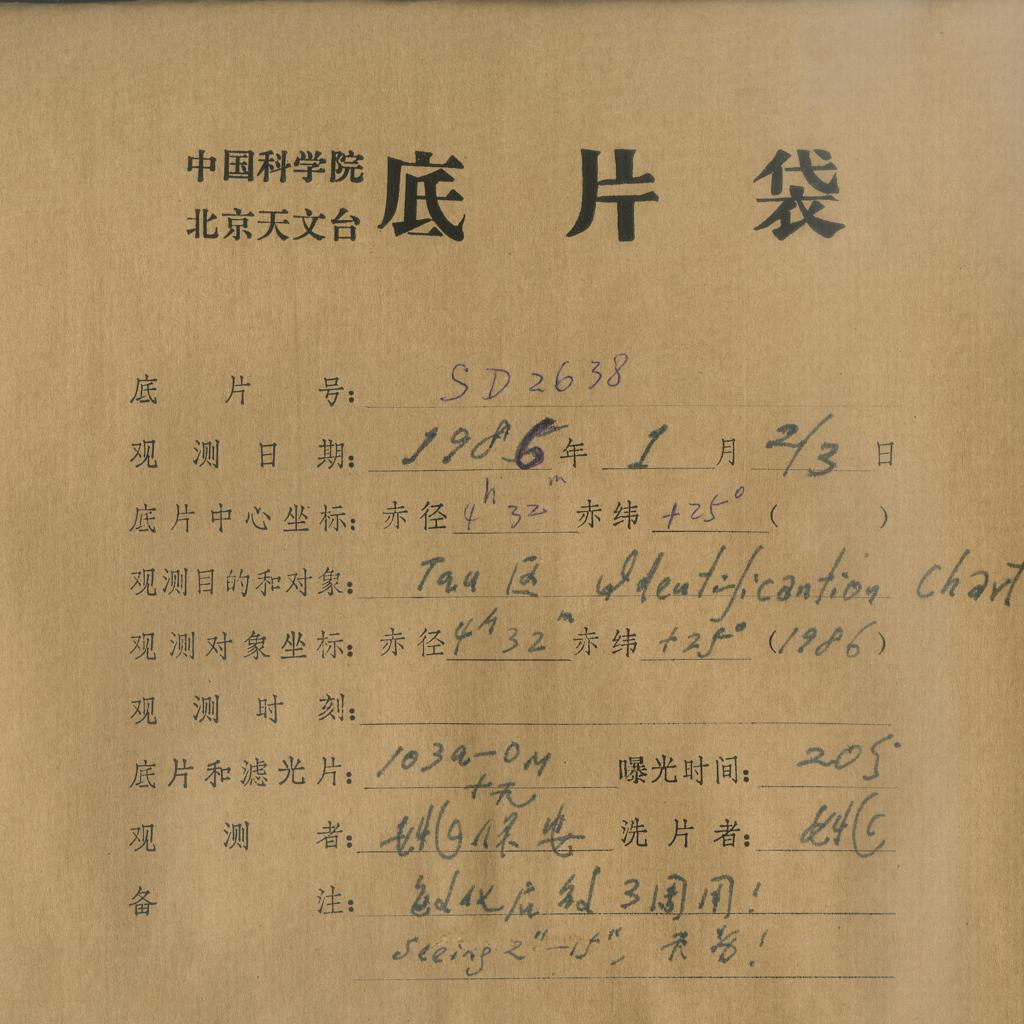 中国科学院
北京天文台
底片袋
底片号: SD2638
观测日期: 1986年 1月 2/3日
底片中心坐标: 赤径 4h 32m 赤纬 +25° ( )
观测目的和对象: Tau 区 Identificantion chart
观测对象坐标: 赤径 4h 32m 赤纬 +25° (1986)
观测时刻:
底片和滤光片: 103a-O 曝光时间: 20
+无
观测者: 洗片者:
备注: 敏化后 3周用!
Seeing 2"-15",